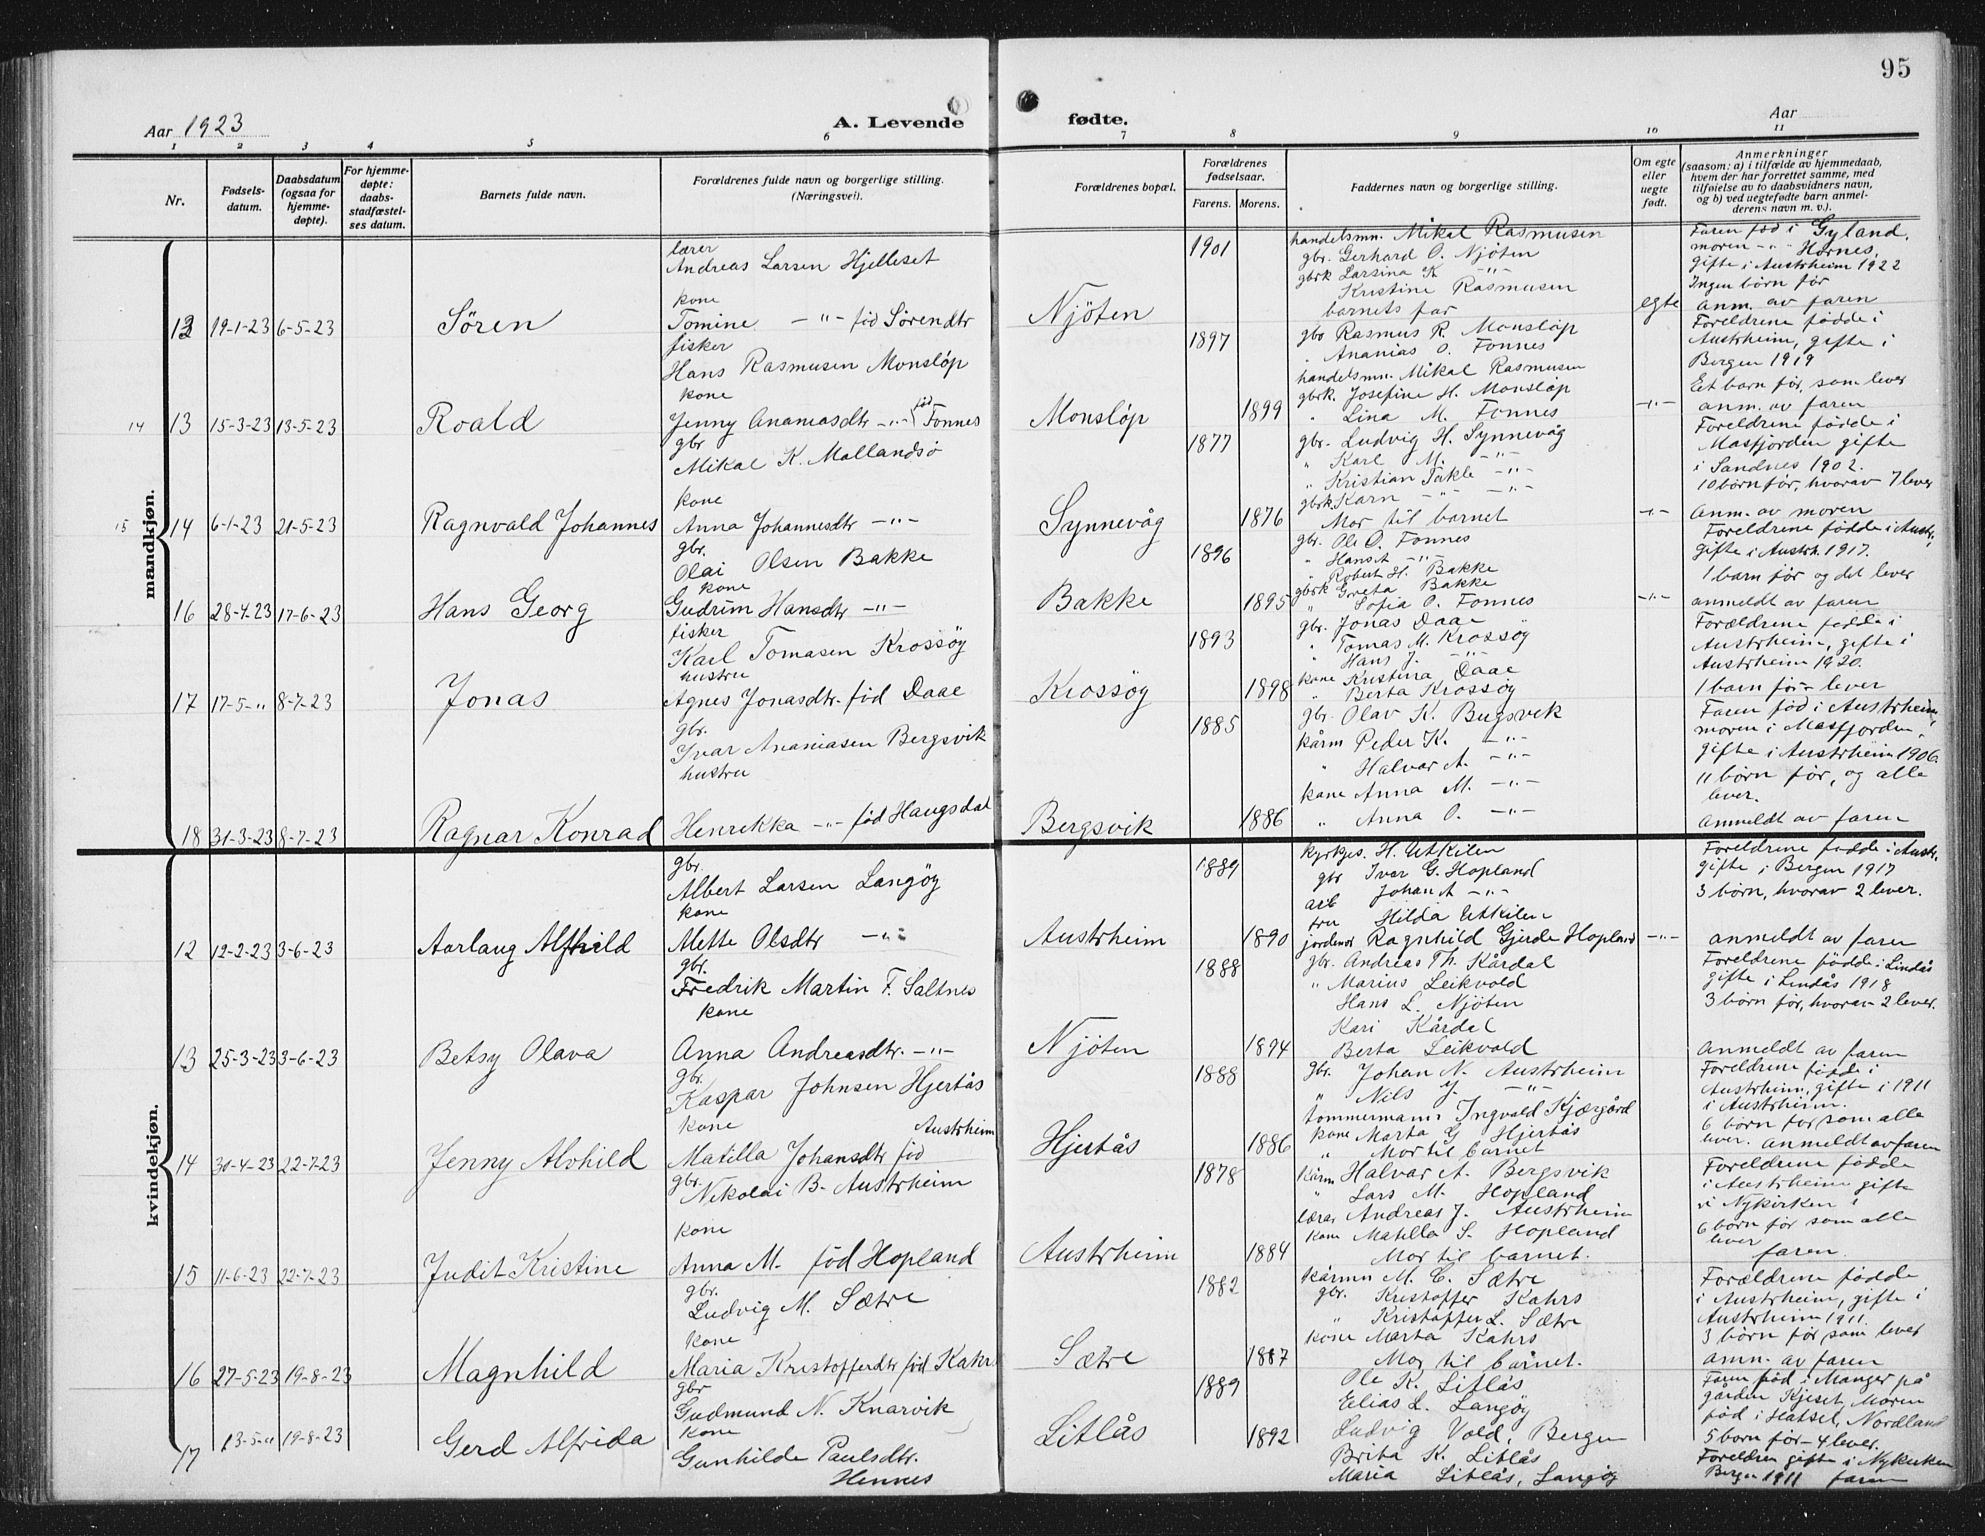 95
Aar 1923
A. Levende
fødte.
Aar
1 2 3 4 5 6 7 8 9 10 11
Nr.
Fødsels-
datum.
Daabsdatum
(ogsaa for
hjemme-
døpte).
For hjemme-
døpte:
daabs-
stadfæstel-
ses datum.
Barnets fulde navn.
Forældrenes fulde navn og borgerlige stilling.
(Næringsvei).
Forældrenes bopæl.
Forældrenes
fødselsaar.
Farens. Morens.
Faddernes navn og borgerlige stilling.
Om egte
eller
uegte
født.
Anmerkninger
(saasom: a) i tilfælde av hjemmedaab,
hvem der har forrettet samme, med
tilføielse av to daabsvidners navn,
og b) ved uegtefødte barn anmel-
derens navn m. v.).
mandkjøn.
13 19-1-23 6-5-23
Søren
lærer
Andreas Larsen Hjelleset
kone
Tomine -"- fød Sørendtr
Njöten
1901
handelsmn. Mikal Rasmusen
gbr. Gerhard O. Njöten
gbrk Larsina K -"-
Kristine Rasmusen
barnets far
egte
Faren fød i Gyland,
moren -"- Hornes,
gifte i Austrheim 1922
Ingen børn før
anm. av faren
14 13 15-3-23 13-5-23
Roald
fisker
Hans Rasmusen Monslöp
kone
Jenny Ananiasdtr -"- fød Fonnes
Monslöp
1897
1899
gbr Rasmus R. Monslöp
" Ananias O. Fonnes
handelsmn. Mikal Rasmusen
gbrk. Josefine H. Monslöp
" Lina M. Fonnes
-"-
Foreldrene födde i
Austrheim, gifte i
Bergen 1919
Et barn før, som lever
anm. av faren
15 14 6-1-23 21-5-23
Ragnvald Johannes
gbr
Mikal K. Mollandsö
kone
Anna Johannesdtr -"-
Synnevåg
1877
1876
gbr. Ludvig H. Synnevåg
" Karl M. -"-
" Kristian Takle -"-
gbrk Karn -"- -"-
Mor til barnet
-"-
Foreldrene födde i
Masfjorden gifte
i Sandnes 1902.
10 børn før, hvorav 7 lever
Anm. av moren
16 28-4-23 17-6-23
Hans Georg
gbr.
Olai Olsen Bakke
kone
Gudrun Hansdtr -"-
Bakke
1896
1895
gbr. Ole O. Fonnes
" Hans A -"-
" Robert H. Bakke
gbrk Greta Bakke
" Sofia O. Fonnes
-"-
Foreldrene födde i Austr.,
gifte i Austrh. 1917.
1 barn før og det lever
anmeldt av faren
17 17-5-" 8-7-23
Jonas
fisker
Karl Tomasen Krossöy
hustru
Agnes Jonasdtr. fød Daae
Krossöy
1893
1898
gbr. Jonas Daae
" Tomas M. Krossöy
" Hans J. -"-
kone Kristina Daae
" Berta Krossöy
Forældrene fødde i
Austrheim, gifte i
Austrheim 1920.
1 barn før - lever
18 31-3-23 8-7-23
Ragnar Konrad
gbr.
Ivar Ananiasen Bergsvik
hustru
Henrikka -"- fød Haugsdal
Bergsvik
1885
1886
gbr. Olav K. Bugsvik
kårm Peder K. -"-
" Halvar A. -"-
kone Anna M. -"-
" Anna O. -"-
Faren fød i Austrheim,
moren i Masfjorden,
gifte i Austrheim 1906
11 børn før, og alle
lever.
Anmeldt av faren
kvindekjøn.
12 12-2-23 3-6-23
Aarlaug Alfhild
gbr.
Albert Larsen Langöy
kone
Alette Olsdtr -"-
Austrheim
1889
1890
kyrkjes. H. Utkilen
gbr Ivar G. Hopland
arb Johan A -"-
fru Hilda Utkilen
jordmor Ragnhild Gjerde Hopland
-"-
Foreldrene fødde i Austr.
gifte i Bergen 1917
3 børn, hvorav 2 lever.
anmeldt av faren
13 25-3-23 3-6-23
Betsy Olava
gbr.
Fredrik Martin F. Saltnes
kone
Anna Andreasdtr. -"-
Njöten
1888
1894
gbr. Andreas Th. Kårdal
" Marius Leikvold
Hans L. Njöten
Kari Kårdal
Berta Leikvold
Foreldrene födde i Lindås
gifte i Lindås 1918
3 børn før, hvorav 2 lever.
Anmeldt av faren
14 30-4-23 22-7-23
Jenny Alvhild
gbr.
Kaspar Johnsen Hjertås
kone
Matilla Johansdtr fød Austrheim
Hjertås
1888
1886
gbr. Johan N. Austrheim
" Nils J. -"-
tømmermann Ingvald Kjærgård
kone Marta G Hjertås
" Mor til barnet
Foreldrene födde i
Austrheim, gifte i 1911
i Austrheim.
6 børn før som alle
lever. anmeldt av faren
15 11-6-23 22-7-23
Judit Kristine
gbr.
Nikolai B. Austrheim
kone
Anna M. fød Hopland
Austrheim
1878
1884
Kårm Halvar A. Bergsvik
" Lars M. Hopland
lærer Andreas J. Austrheim
kone Matilla S. Hopland
Mor til barnet.
Foreldrene födde
i Austrheim gifte
i Nykirken i
6 børn før som alle
lever
faren.
16 27-5-23 19-8-23
Magnhild
gbr.
Ludvig M. Sætre
kone
Maria Kristofferdtr fød Kahrs
Sætre
1882
1887
kårmn M. C. Sætre
gbr. Kristoffer Kahrs
" Kristoffer L. Sætre
kone Marta Kahrs
Mor til barnet.
Forældrene födde
i Austrheim, gifte i
Austrheim 1911.
3 børn før som lever
anm. av faren
17 13-5-" 19-8-23
Gerd Alfrida
gbr
Gudmund N. Knarvik
kone
Gunhilde Paulsdtr.
Hennes
Litlås
1889
1892
Ole K. Litlås
Elias L. Langöy
Ludvig Vold, Bergen
Brita K. Litlås
Maria Litlås, Langöy
Faren fød i Manger på
gården Kjeset, Moren
fød i Hatsel, Nordland
5 børn før - 4 lever.
Foreldren gifte i Nykirken
Bergen 1911 faren